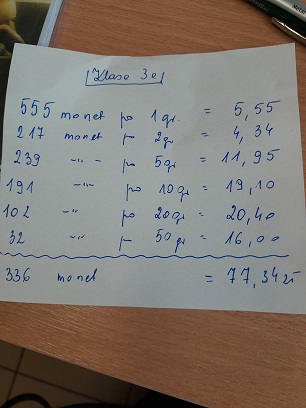 Klasa 3e
555 monet po 1 gr. = 5,55
217 monet po 2 gr = 4,34
239 -"- po 5 gr = 11,95
191 -"- po 10 gr = 19,10
102 -"- po 20 gr = 20,40
32 -"- po 50 gr = 16,00
336 monet = 77,34 zł